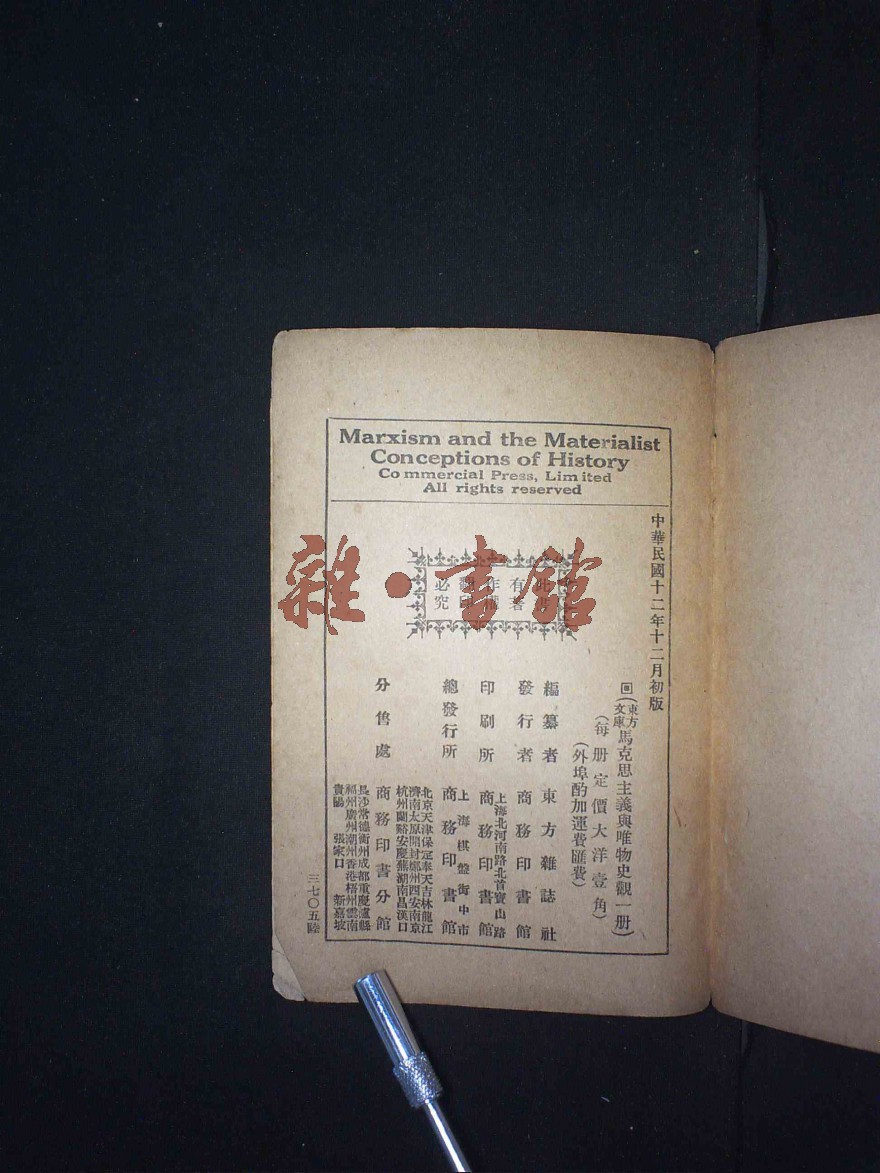 Marxism and the Materialist
Conceptions of History
Commercial Press, Limited
All rights reserved
中華民國十二年十二月初版
回(東方文庫)馬克思主義與唯物史觀一册)
(每册定價大洋壹角)
(外埠酌加運費匯費)
編纂者 東方雜誌社
發行者 商務印書館
印刷所 上海北河南路北首寶山路 商務印書館
總發行所 上海棋盤街中市 商務印書館
分售處 商務印書分館
北京天津保定奉天吉林龍江
濟南太原開封鄭州西安南京
杭州蘭谿安慶蕪湖南昌漢口
長沙常德衡州成都重慶瀘縣
福州廣州潮州香港梧州雲南
貴陽 張家口 新嘉坡
有著
必究
三七〇五陸
雜·書館